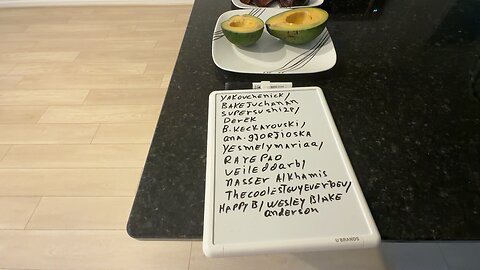 YAKOVCHENICK/
BAKEJUCHANAN
SUPERSUSHI2P/
Derek
B.KECKAROVSKI/
ana.gJORJIOSKA
YESMELYMARIAA/
RAYEPAO
VEILEDDARB/
NASSER ALKHAMIS
THECOOLESTGUYEVERBEV/
HAPPY B/ WESLEY BLAKE
anderson
U BRANDS